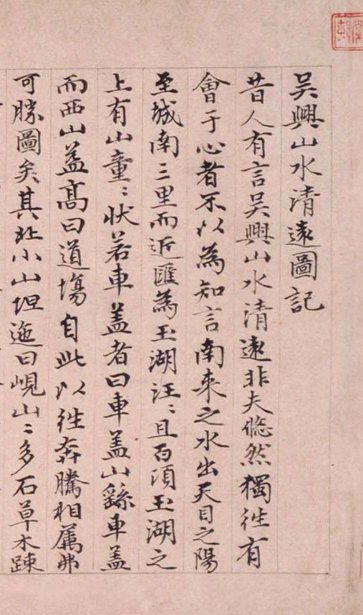 吳興山水清遠圖記
昔人有言吳興山水清遠非夫悠然獨往有
會于心者不以為知言南來之水出天目之陽
至城南三里而近匯為玉湖汪〻且百頃玉湖之
上有山童〻狀若車蓋者曰車蓋山繇車蓋
而西山益高曰道場自此以往奔騰相屬弗
可勝圖矣其北小山坦迤曰峴山〻多石草木疎